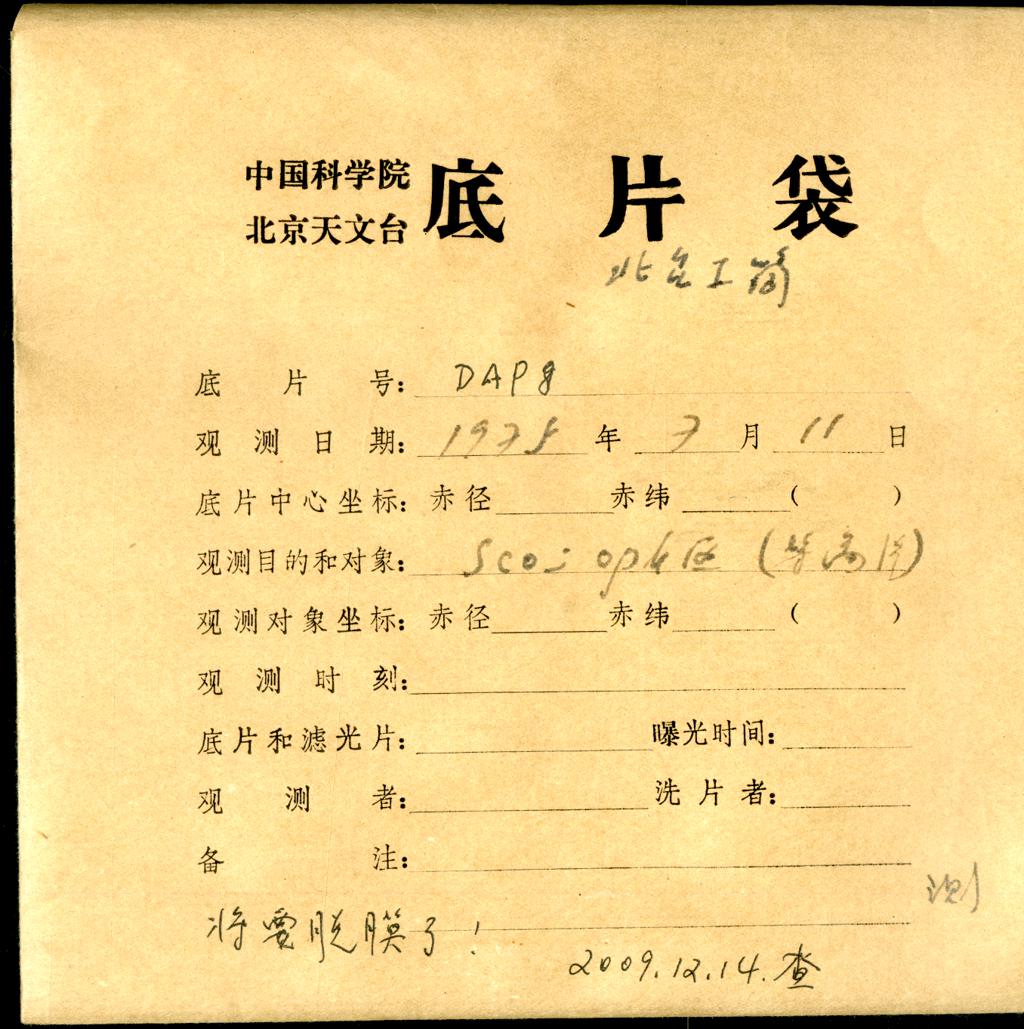 中国科学院
北京天文台 底片袋
北台工
底片号: DAP8
观测日期: 1975年7月11日
底片中心坐标: 赤径 赤纬 ( )
观测目的和对象: Sco- oph区 ( )
观测对象坐标: 赤径 赤纬 ( )
观测时刻:
底片和滤光片: 曝光时间:
观测者: 洗片者:
备注:
测
将要脱膜了!
2009.12.14.查